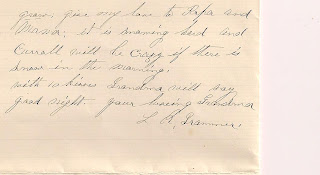 give my love to Papa and
Mama; it is snowing and
Carroll will be crazy if there is
snow in the morning.
with kisses Grandma will say
good night. your loving Grandma
L R Grammer.